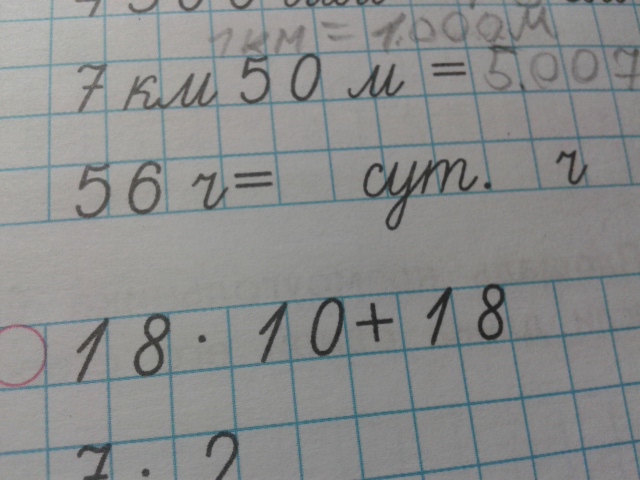 1 км = 1.000 м
7 км 50 м = 5.007
56 ч = сут. ч
18 · 10 + 18
7 · 2